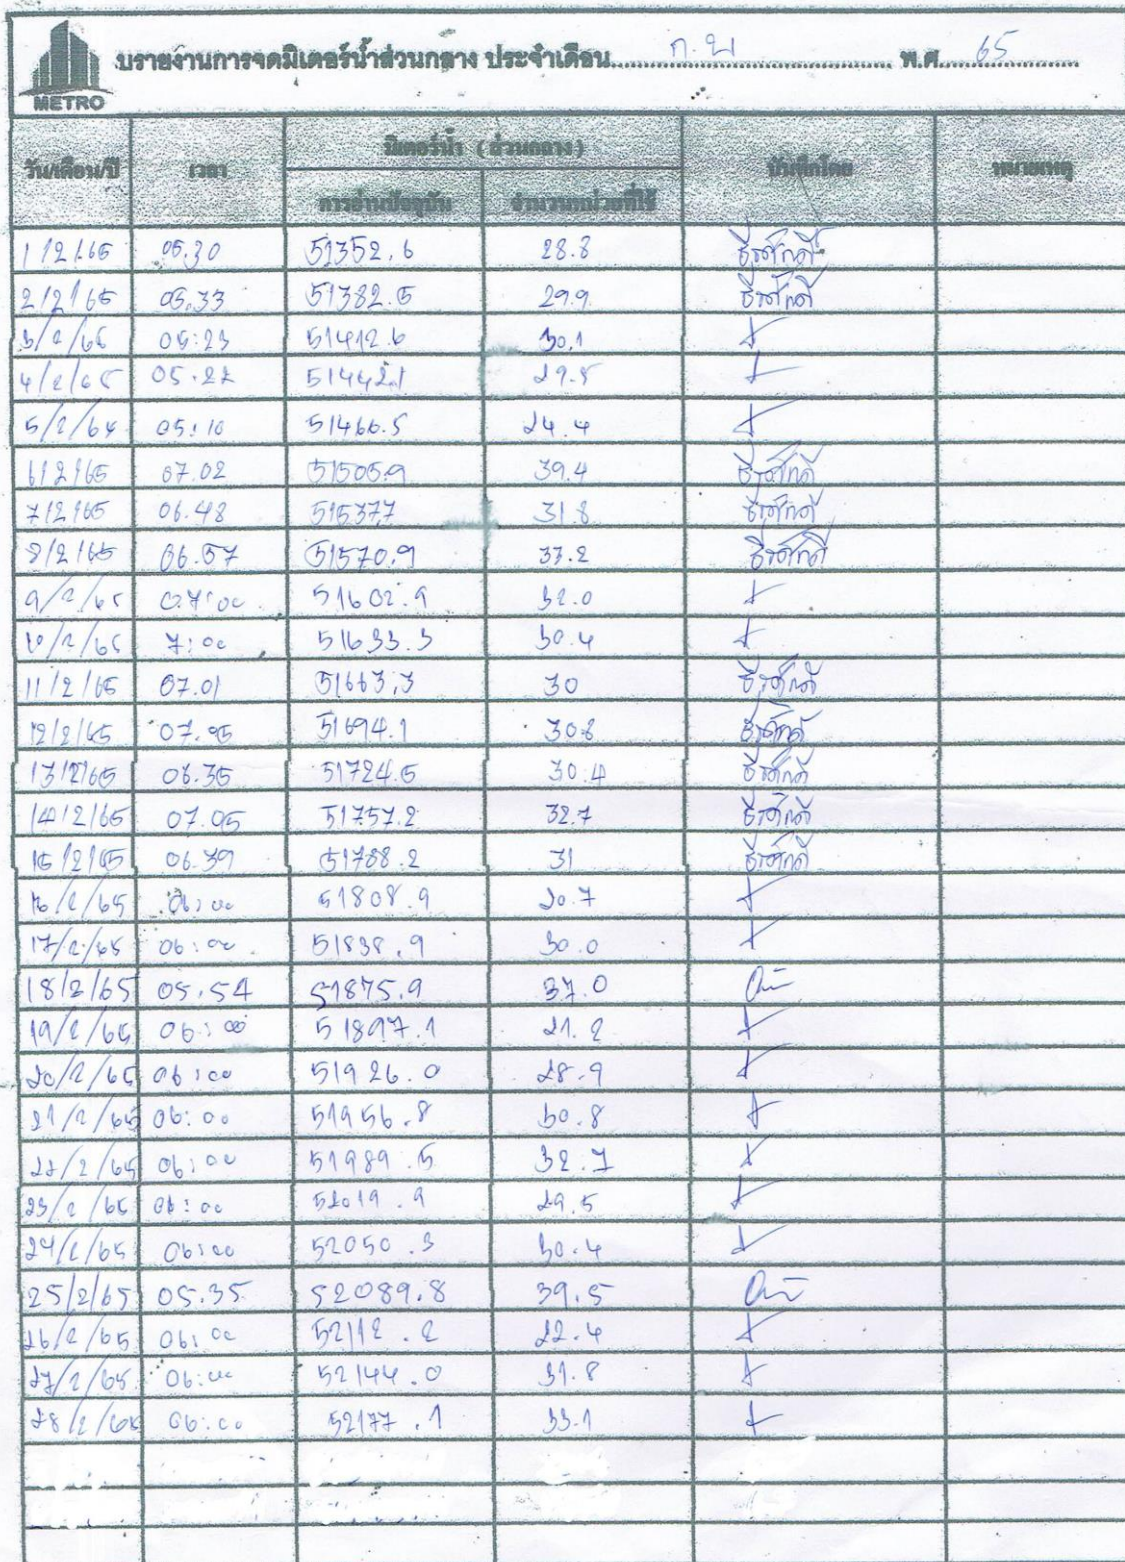 บรายงานการจดมิเตอร์น้ำส่วนกลาง ประจำเดือน ก.พ พ.ศ. 65
METRO
มิเตอร์น้ำ (ส่วนกลาง)
วัน/เดือน/ปี เวลา บันทึกโดย หมายเหตุ
การอ่านปัจจุบัน จำนวนหน่วยที่ใช้
1/2/65 05.30 51352.6 28.8 ธีรศักดิ์
2/2/65 05.33 51382.5 29.9 ธีรศักดิ์
3/2/65 05:23 51412.6 30.1
4/2/65 05.22 51442.1 29.5
5/2/64 05:10 51466.5 24.4
6/2/65 07.02 51505.9 39.4 ธีรศักดิ์
7/2/65 06.48 51537.7 31.8 ธีรศักดิ์
8/2/65 06.57 51570.9 37.2 ธีรศักดิ์
9/2/65 07:00 51602.9 32.0
10/2/65 7:00 51633.3 30.4
11/2/65 07.01 51663.3 30 ธีรศักดิ์
12/2/65 07.05 51694.1 30.8 ธีรศักดิ์
13/2/65 06.35 51724.5 30.4 ธีรศักดิ์
14/2/65 07.05 51757.2 32.7 ธีรศักดิ์
15/2/65 06.39 51788.2 31 ธีรศักดิ์
16/2/65 06:00 51808.9 20.7
17/2/65 06:00 51838.9 30.0
18/2/65 05.54 51875.9 37.0
19/2/65 06:00 51897.1 21.2
20/2/65 06:00 51926.0 28.9
21/2/65 06:00 51956.8 30.8
22/2/65 06:00 51989.5 32.7
23/2/65 06:00 52019.9 29.5
24/2/65 06:00 52050.3 30.4
25/2/65 05.35 52089.8 39.5
26/2/65 06:00 52112.2 22.4
27/2/65 06:00 52144.0 31.8
28/2/65 06:00 52177.1 33.1